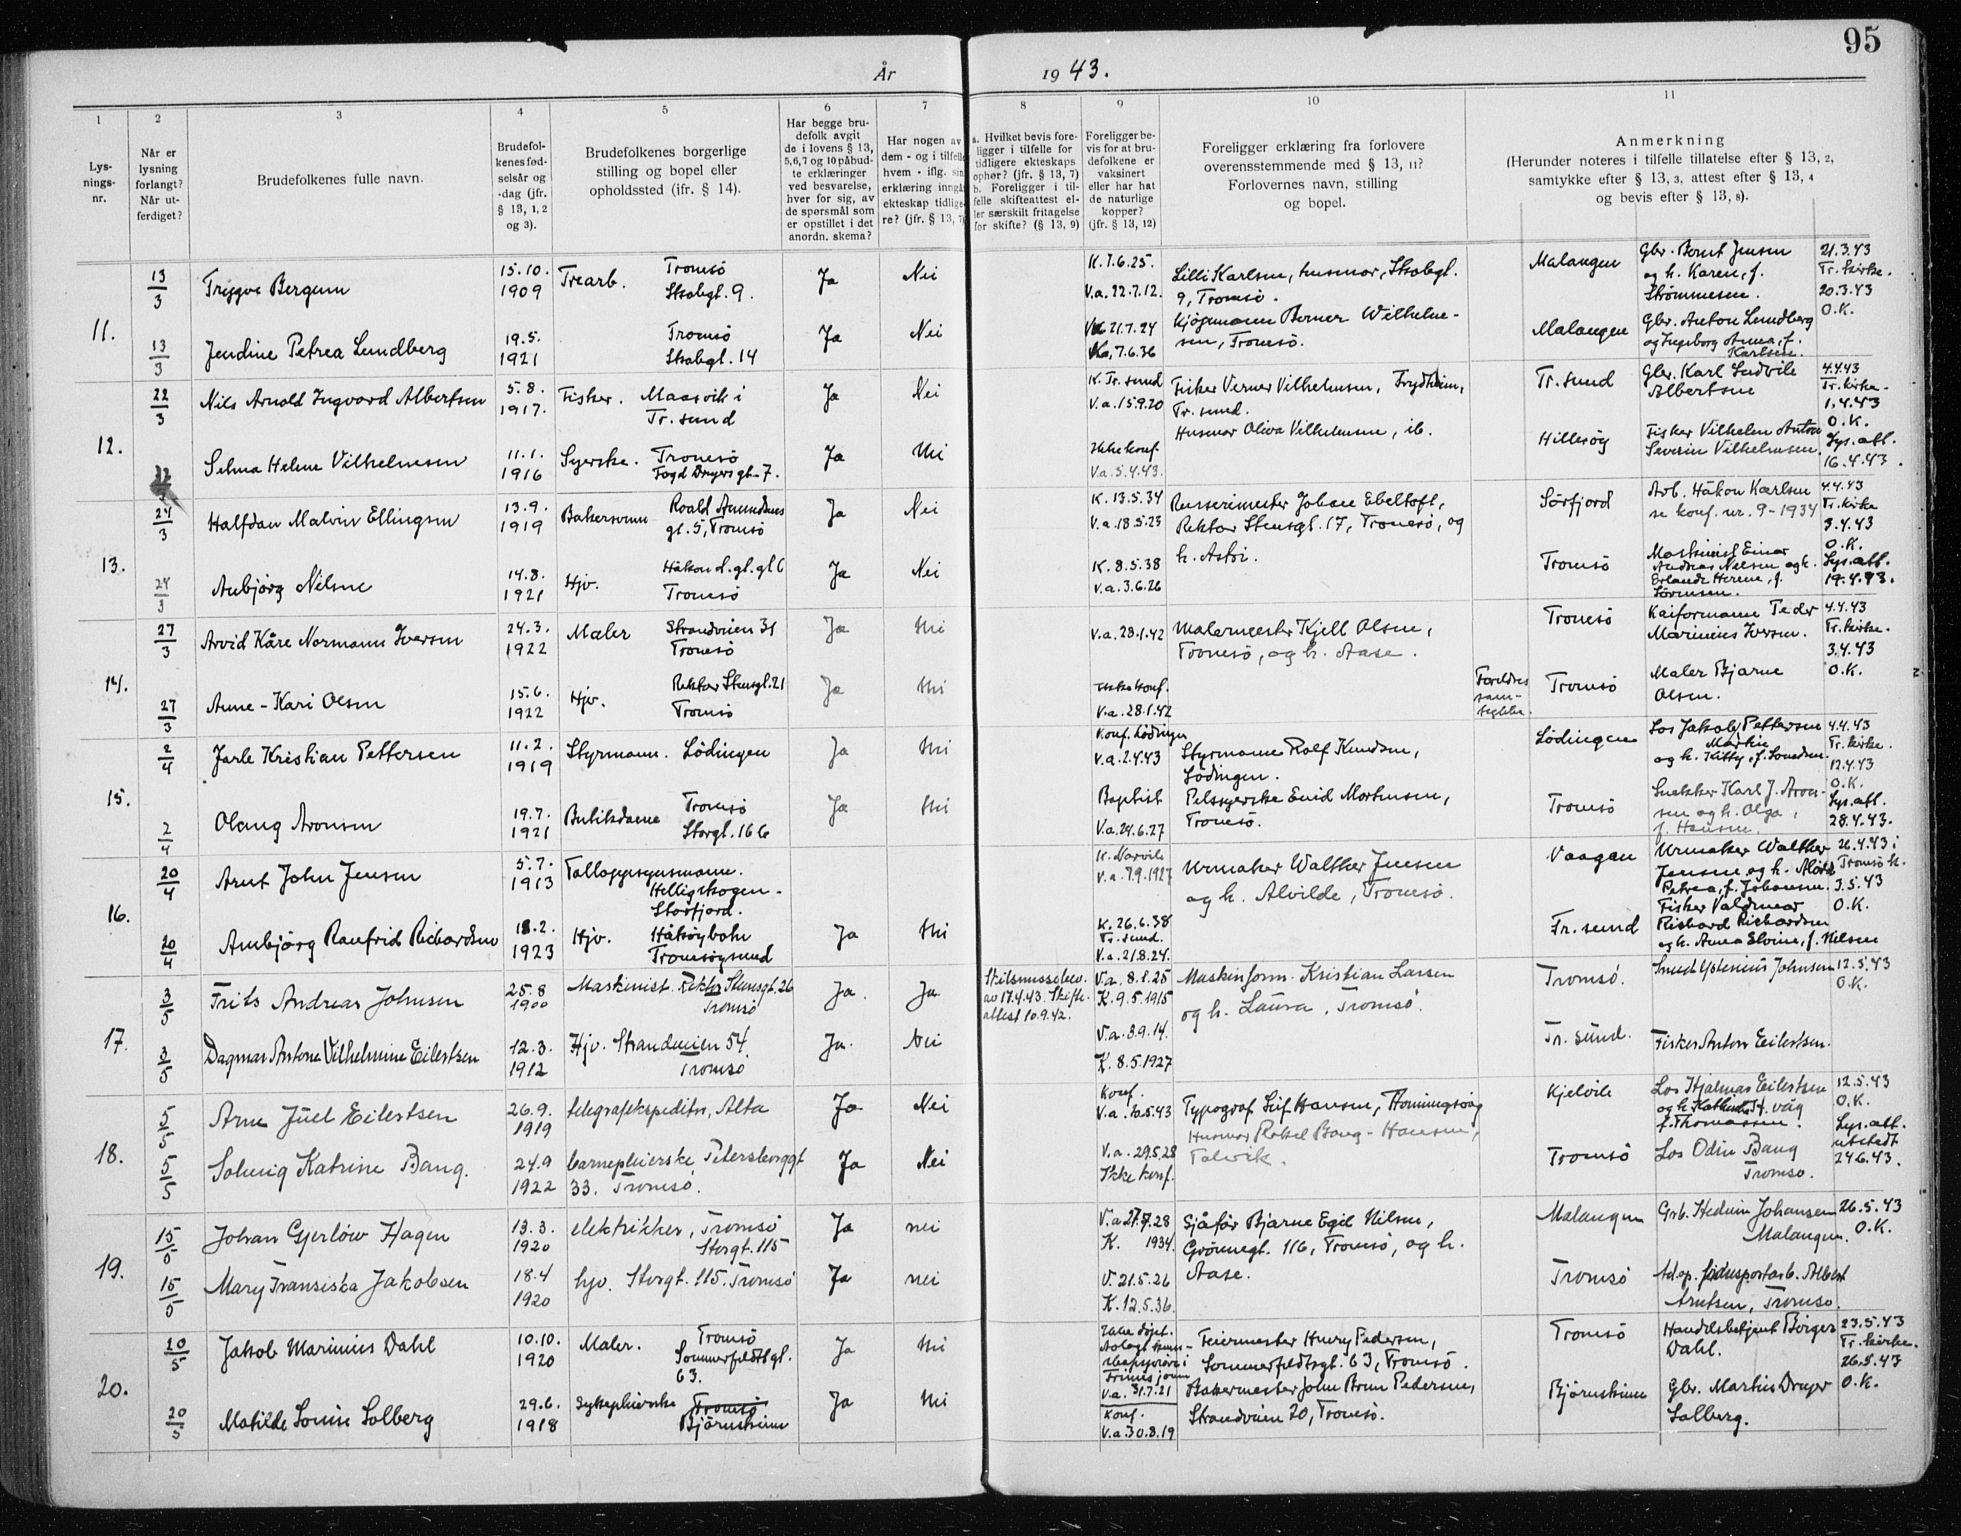 95
År 1943.
1 2 3 4 5 6 7 8 9 10 11
Lys-
nings-
nr.
Når er
lysning
forlangt?
Når ut-
ferdiget?
Brudefolkenes fulle navn.
Brudefol-
kenes fød-
selsår og
-dag (jfr.
§ 13, 1, 2
og 3).
Brudefolkenes borgerlige
stilling og bopel eller
opholdssted (ifr. § 14).
Har begge bru-
defolk avgit
de i lovens § 13,
5,6,7 og 10 påbud-
te erklæringer
ved besvarelse,
hver for sig, av
de spørsmål som
er opstillet i det
anordn. skema?
Har nogen av
dem - og i tilfelle
hvem - iflg. sin
erklæring inngått
ekteskap tidlige-
re? (jfr. § 13, 7)
a. Hvilket bevis fore-
ligger i tilfelle for
tidligere ekteskaps
ophør? (jfr. § 13, 7)
b. Foreligger i til-
felle skifteattest el-
ler særskilt fritagelse
for skifte? (§ 13, 9)
Foreligger be-
vis for at bru-
defolkene er
vaksinert
eller har hat
de naturlige
kopper?
(jfr. § 13, 12)
Foreligger erklæring fra forlovere
overensstemmende med § 13, 11?
Forlovernes navn, stilling
og bopel.
Anmerkning
(Herunder noteres i tilfelle tillatelse efter § 13, 2,
samtykke efter § 13, 3, attest efter § 13, 4
og bevis efter § 13, 8).
11.
13/3 Trygve Bergum 15.10. 1909 Trearb. Tromsö Skolegt. 9. Ja Nei
K. 7.6.25.
V.a. 22.7.12.
Lilli Karlsen, husmor, Skolegt.
9, Tromsö.
Malangen
Gbr. Bernt Jensen
og h. Karen, f.
Strømmesen.
21.3.43
Tr. kirke.
20.3.43
O.K.
13/3 Jendine Petrea Lundberg 19.5. 1921 Tromsö Skolegt. 14 Ja Nei
21.7.24
7.6.36
Kjøpmann Berner Wilhelm-
sen, Tromsö.
Malangen
Gbr. Anton Lundberg
og Ingeborg Anna, f.
Karlsen.
12.
22/3 Nils Arnold Ingvard Albertsen 5.8. 1917. Fisker. Maasvik i Tr. sund Ja Nei
K. Tr. sund
V.a. 15.9.20
Fisker Verner Vilhelmsen, Trydheim,
Tr. sund.
Husmor Oliva Vilhelmsen, ib.
Tr. sund
Gbr. Karl Ludvik
Albertsen
4.4.43
Tr. kirke.
1.4.43
O.K.
Lys. att.
16.4.43.
Selma Helene Vilhelmsen 11.1. 1916 Syerske. Tromsö Fogd Dreyers gt. 7. Ja Nei
Ikke konf.
V.a. 5.4.43.
Hillesöy
Fisker Vilhelm Anton
Severin Vilhelmsen.
13.
24/3 Halfdan Malvin Ellingsen 13.9. 1919 Bakersvenn Roald Amundsens gt. 5, Tromsö Ja Nei
K. 13.5.34
V.a. 18.5.23
Rensserimester Johan Ebeltoft,
Rektor Steensgt. 17, Tromsö, og
h. Astri.
Sörfjord
Arb. Håkon Karlsen
se konf. nr. 9-1934
4.4.43
Tr. kirke
3.4.43
O.K.
Lys. att.
19.4.43.
24/3 Anbjørg Nilsen 14.8. 1921 Hjv. Håkon d. gl. gt 6 Tromsö Ja Nei
K. 8.5.38
V.a. 3.6.26
Tromsö
Maskinist Einar
Andreas Nilsen og h.
Erlande Herene, f.
Sörensen.
14.
27/3 Arvid Kåre Normann Iversen 24.3. 1922 Maler Strandveien 31 Tromsö Ja Nei
V.a. 28.1.42
Malermester Kjell Olsen,
Tromsö, og h. Aase.
Tromsö
Kaiformann Peder
Marinius Iversen.
4.4.43
Tr. kirke.
3.4.43
O.K.
27/3 Anne-Kari Olsen 15.6. 1922 Hjv. Rektor Steensgt. 21 Tromsö Ja Nei
Ikke konf.
V.a. 28.1.42
Foreldres
sam-
tykke.
Tromsö
Maler Bjarne
Olsen.
15.
2/4 Jarle Kristian Pettersen 11.2. 1919 Styrmann. Lödingen Ja Nei
Konf. Lödingen
V.a. 2.4.43
Styrmann Rolf Knudsen,
Lödingen.
Lödingen
Los Jakob Pettersen
Martin
og h. Kitty, f.
4.4.43
Tr. kirke.
12.4.43
O.K.
Lys. att.
28.4.43.
2/4 Olaug Aronsen 19.7. 1921 Butikdame Tromsö Storgt. 166 Ja Nei
Baptist
V.a. 24.6.27
Pelssyerske Enid Mortensen,
Tromsö.
Tromsö
Snekker Karl J. Aron-
sen og h. Olga,
f. Hansen.
16.
20/4 Arnt John Jensen 5.7. 1913 Tollopsynsmann. Helligskogen - Storfjord.
K. Narvik
V.a. 7.9.1927
Urmaker Walther Jensen
og h. Alvilde, Tromsö.
Vaagan
Urmaker Walther
Jensen og h. Alvilde
Petrea, f. Johansen.
26.4.43 i
Tromsö k.
3.5.43
O.K.
20/4 Annbjörg Ranfrid Richardsen 18.2. 1923 Hjv. Håköybotn Tromsöysund Ja Nei
K. 26.6.38
Tr. sund.
V.a. 21.8.24.
Tr. sund
Fisker Valdemar
Rickard Richardsen
og h. Anna Elvine, f. Nilsen
17.
3/5 Frits Andreas Johnsen 25.8 1900 Maskinist. Rektor Steensgt. 26 Tromsö Ja. Ja
Skilsmissebev.
av 17.4.43. Skifte-
attest 10.9.42.
V.a. 8.1.25
K. 9.5.1915
Maskinform. Kristian Larsen
og h. Laura, Tromsö.
Tromsö.
Smed Johnsen
12.5.43
O.K.
3/5 Dagmar Antone Vilhelmine Eilertsen 12.3. 1912 Hjv. Strandveien 54. Tromsö Ja. Nei
V.a. 3.9.14.
K. 8.5.1927
Tr. sund.
Fisker Anton Eilertsen.
18.
5/5 Arne Juel Eilertsen 26.9. 1919 telegrafekspeditr, Alta Ja Nei
Konf.
V.a. 10.5.43
Typograf Leif Hansen, Honningsvåg
Husmor Rakel Bang-Hansen,
Talvik.
Kjelvik
Los Hjalmar Eilertsen
og h. Kathinka H. våg
f. Thomassen.
12.5.43
O.K.
Lys. att.
utstedt
24.6.43.
5/5 Solveig Katrine Bang. 24.9 1922 barnepleierske Petersborggt 33. Tromsö. Ja Nei
V.a. 29.5.28
Ikke konf.
Tromsö
Los Odin Bang
Tromsö.
19.
15/5 Johan Gjerløw Hagen 13.3. 1920 elektrikker, Tromsö Storgt. 115 Ja nei
V.a. 27.7.28
K. 1934.
Sjåfør Bjarne Egil Nilsen,
Grönnegt. 116, Tromsö, og h.
Aase.
Malangen
Grb. Hedvin Johansen
Malangen.
26.5.43
O.K.
15/5 Mary Fransiska Jakobsen 18.4 1920 hjv. Storgt. 115. Tromsö Ja nei
V. 21.5.26
K. 12.5.36.
Tromsö
Adop. Albert
Arntsen, Tromsö.
20.
20/5 Jakob Marinius Dahl 10.10. 1920 Maler. Tromsö Sommerfeldtsgt. 63. Ja Nei
Ikke döpt.
V.a. 31.7.21
Feiermester Henry Pedersen,
Sommerfeldtsgt. 63, Tromsö.
Tromsö
Handelsbetjent Birger
Dahl.
23.5.43
Tr. kirke.
26.5.43
O.K.
20/5 Matilde Lovise Solberg 29.6. 1918 Sykepleierske Tromsö Björnskinn Ja Nei
Konf.
V.a. 30.8.19
Bakermester John Brun Pedersen,
Strandveien 20, Tromsö.
Björnskinn
Gbr. Martin Dreyer
Solberg.